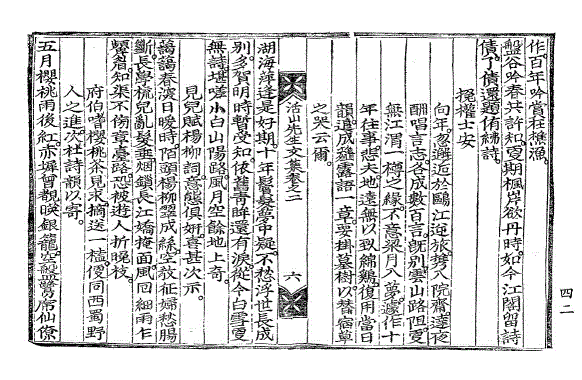 作百年吟賞狂樵漁
盤谷吟春共許知夏期楓岸欲丹時如今江閣留詩
債了債還題侑綈詩
挽權士安
向年邂逅於鷗江逆旅携入院齋達夜
酬唱言志各成數百言旣別雲山路阻更
無江渭一樽之緣不意梁月入夢遽作十
年往事悲夫地遠無以致綿鷄復用當日
韻遺成薤露語一章要掛墓樹以替宿草
之哭云爾
活山先生文集卷之二
六
湖海萍逢是好期十年鬢髮夢中疑不愁浮世長成
別多賀明時暫受知依舊靑眸還有淚從今白雪更
無詩堪嗟小白山陽路風月空餘地上奇
見兒賦楊柳詞意態俱姸喜甚次示
藹藹春濃日暖時陌頭楊柳翠成絲空敎征婦愁腸
斷長學梳兒亂髮垂烟鎖長江嬌掩面風回細雨乍
顰眉知渠不傍章臺路恐被遊人折晩枝
府伯嘗櫻桃茶見求摘送一榼便同西蜀野
人之進次杜詩韻以寄
五月櫻桃雨後紅赤墀曾覩映銀籠空盤驚席仙僚
四二